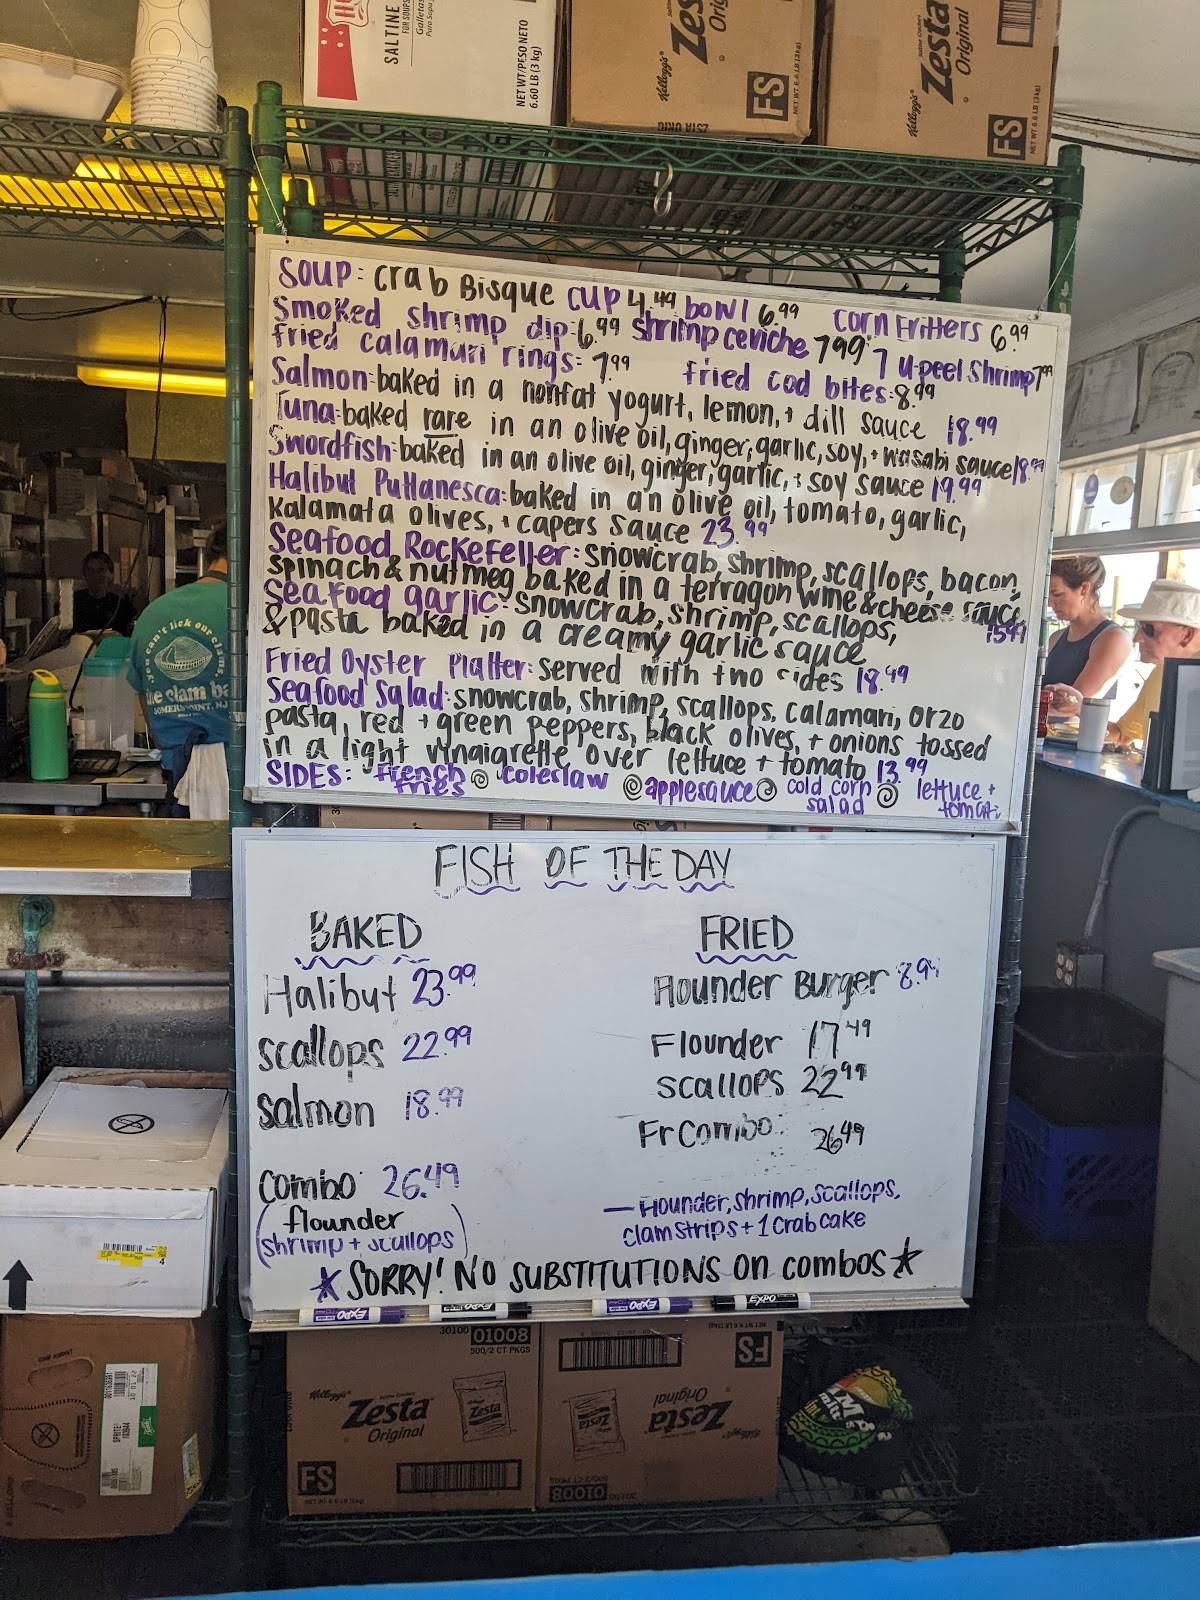 SALTINE
FOR SOUPS
Galletas
Para Sopa
NET WT/PESO NETO
6.60 LB (3 kg)
Kellogg's
Zes
Orig
FS
NET WT 6.6 LB (3kg)
Kellogg's
Zesta
Original
FS
NET WT 6.6 LB (3kg)
SOUP: Crab Bisque CUP 4.49 bowl 6.99 Corn Fritters 6.99
Smoked shrimp dip: 6.99 shrimp ceviche 7.99 7 U-peel Shrimp 7.99
fried calamari rings: 7.99 fried cod bites: 8.99
Salmon: baked in a nonfat yogurt, lemon, + dill sauce 18.99
Tuna: baked rare in an olive oil, ginger, garlic, soy, + wasabi sauce 18.99
Swordfish: baked in an olive oil, ginger, garlic, + soy sauce 19.99
Halibut Puttanesca: baked in an olive oil, tomato, garlic,
Kalamata olives, + capers sauce 23.99
Seafood Rockefeller: snowcrab, shrimp, scallops, bacon,
spinach & nutmeg baked in a terragon wine & cheese sauce
Seafood garlic: snowcrab, shrimp, scallops, 15.99
& pasta baked in a creamy garlic sauce
Fried Oyster Platter: served with two sides 18.49
Seafood Salad: snowcrab, shrimp, scallops, calamari, orzo
pasta, red + green peppers, black olives, + onions tossed
in a light vinaigrette over lettuce + tomato 13.99
SIDES: French fries coleslaw applesauce cold corn salad lettuce + tomato
you can't lick our clams
the clam ba
SOMERS POINT, NJ
FISH OF THE DAY
BAKED
Halibut 23.99
scallops 22.99
salmon 18.99
combo 26.49
(flounder
shrimp + scallops)
FRIED
Flounder Burger 8.99
Flounder 17.49
scallops 22.99
Fr Combo: 26.49
— Flounder, shrimp, scallops,
clam strips + 1 crab cake
★ SORRY! NO SUBSTITUTIONS on combos ★
EXPO
EXPO
EXPO
EXPO
30100 01008
500/2 CT PKGS
Kellogg's
Zesta
Original
Zesta
FS
NET WT 6.6 LB (3kg)
FS
Zesta
Original
Zesta
500/2 CT PKGS
30100 01008
SPRITE
4